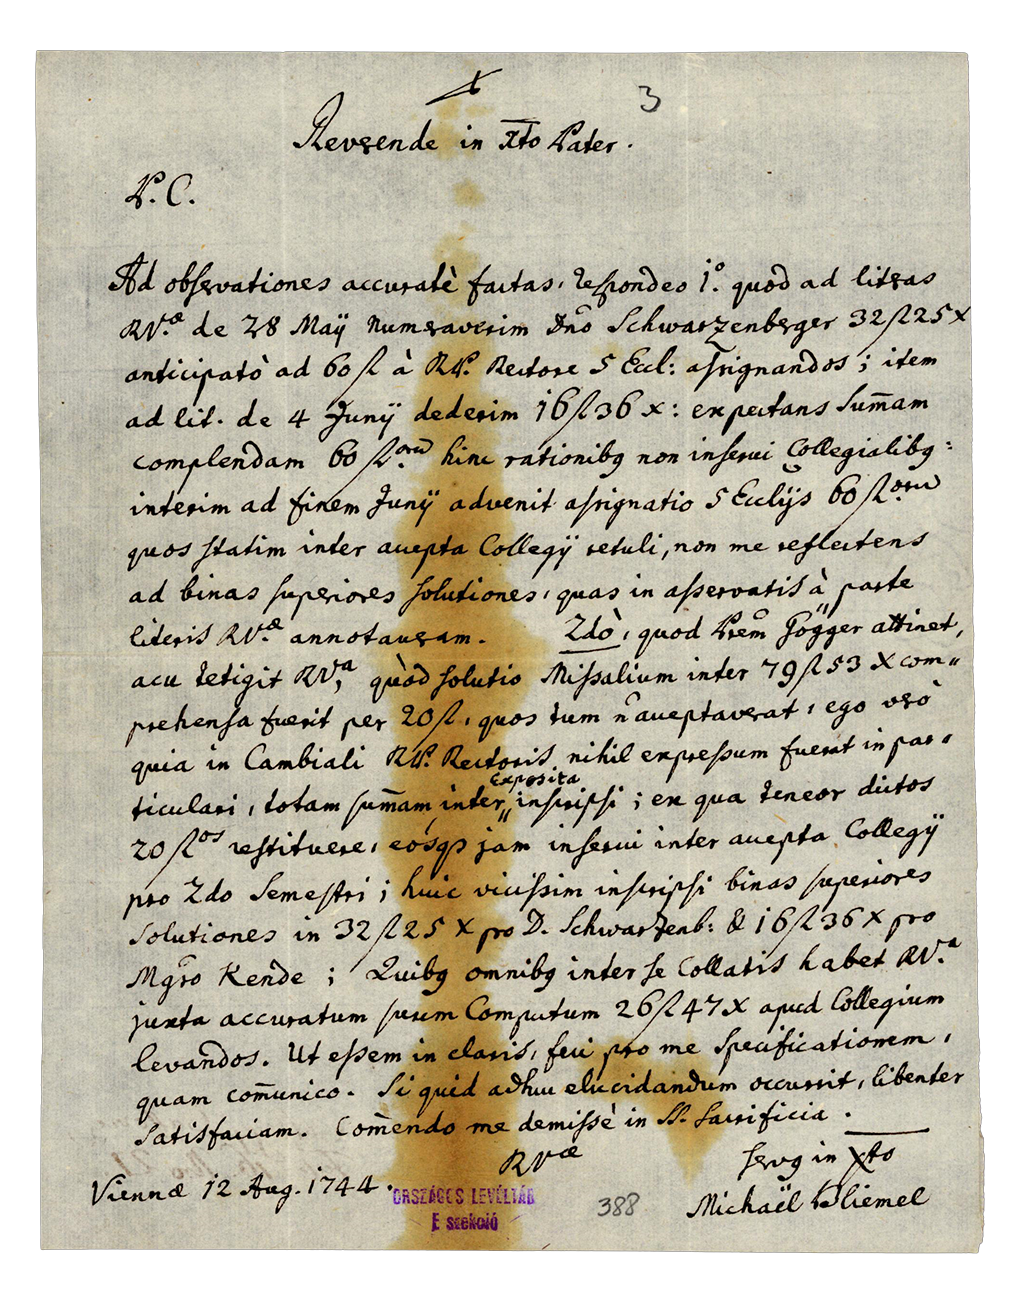 3
Reverende in Xto Pater.
P. C.
Ad observationes accuratè factas, respondeo 1º quod ad literas
RV.æ de 28 Maÿ numeraverim Dño Schwarzenberger 32 fl 25 x
anticipatò ad 60 fl à R.P. Rectore 5 Eccl: assignandos; item
ad lit. de 4 Junÿ dederim 16 fl 36 x: expectans sum̄am
complendam 60 fl.orũ hinc rationibq non inserui Collegialibq:
interim ad finem Junÿ advenit assignatio 5 Ecclÿs 60 fl orũ
quos statim inter accepta Collegÿ retuli, non me reflectens
ad binas superiores solutiones, quas in asservatis à parte
literis RV.æ annotaveram. 2dò, quod Prẽm Gögger attinet,
acu tetigit RV.a, quòd solutio Missalium inter 79 fl 53 x com„
prehensa fuerit per 20 fl, quos tum ñ acceptaverat, ego verò
quia in Cambiali R.P. Rectoris nihil expressum fuerat in par„
exposita
ticulari, totam sum̄am inter„ inscripsi; ex qua teneor dictos
20 fl os restituere, eósqz jam inserui inter accepta Collegÿ
pro 2do Semestri; huic vicissim inscripsi binas superiores
solutiones in 32 fl 25 x pro D. Schwarzenb: & 16 fl 36 x pro
Mgro Kende; Quibq omnibq inter se collatis habet RV.a
juxta accuratum Computum 26 fl 47 x apud Collegium
levandos. Ut essem in claris, feci pro me specificationem,
quam com̄unico. Si quid adhuc elucidandum occurrit, libenter
satisfaciam. Com̄endo me demissè in SS. Sacrificia.
RVæ
servq in Xto
Viennæ 12 Aug. 1744.
Michaël Pliemel
ORSZÁGOS LEVÉLTÁR
E szekció
388